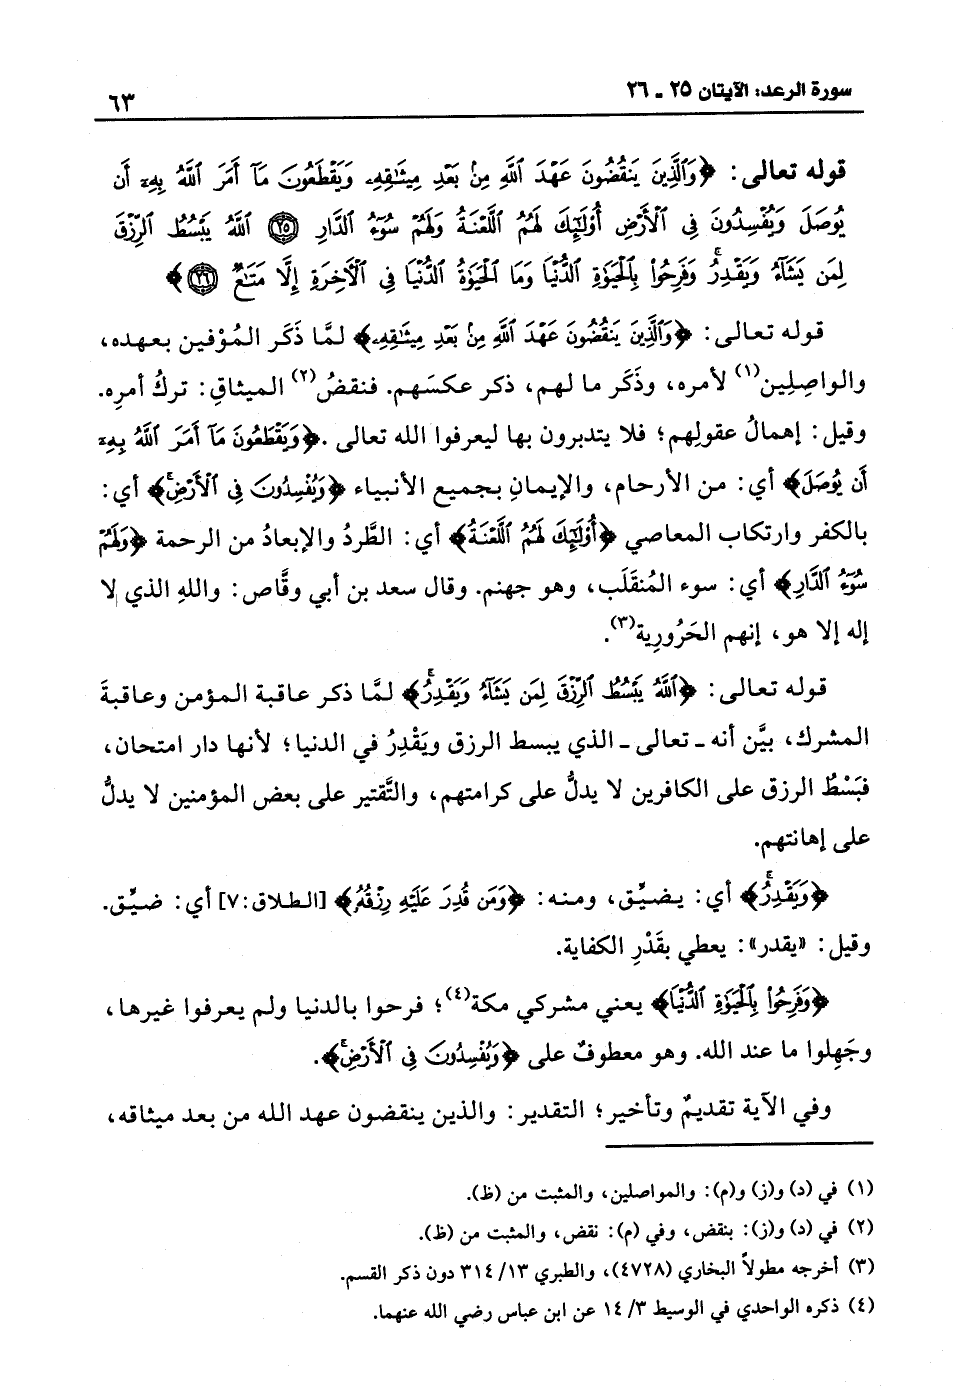 سورة الرعد: الآيتان ٢٥ - ٢٦
٦٣
قوله تعالى: ﴿وَٱلَّذِينَ يَنقُضُونَ عَهْدَ ٱللَّهِ مِنۢ بَعْدِ مِيثَٰقِهِۦ وَيَقْطَعُونَ مَآ أَمَرَ ٱللَّهُ بِهِۦٓ أَن
يُوصَلَ وَيُفْسِدُونَ فِي ٱلْأَرْضِ أُوْلَٰٓئِكَ لَهُمُ ٱللَّعْنَةُ وَلَهُمْ سُوٓءُ ٱلدَّارِ ۝٢٥ ٱللَّهُ يَبْسُطُ ٱلرِّزْقَ
لِمَن يَشَآءُ وَيَقْدِرُ ۚ وَفَرِحُوا۟ بِٱلْحَيَوٰةِ ٱلدُّنْيَا وَمَا ٱلْحَيَوٰةُ ٱلدُّنْيَا فِي ٱلْأَخِرَةِ إِلَّا مَتَٰعٌ ۝٢٦﴾
قوله تعالى: ﴿وَٱلَّذِينَ يَنقُضُونَ عَهْدَ ٱللَّهِ مِنۢ بَعْدِ مِيثَٰقِهِۦ﴾ لمَّا ذَكَر المُوْفين بعهده،
والواصِلِين(١) لأمره، وذَكَر ما لهم، ذكر عكسَهم. فنقضُ(٢) الميثاقِ: تركُ أمرِه.
وقيل: إهمالُ عقولِهم؛ فلا يتدبرون بها ليعرفوا الله تعالى .﴿وَيَقْطَعُونَ مَآ أَمَرَ ٱللَّهُ بِهِۦٓ
أَن يُوصَلَ﴾ أي: من الأرحام، والإيمانِ بجميع الأنبياء ﴿وَيُفْسِدُونَ فِي ٱلْأَرْضِ ۚ﴾ أي:
بالكفر وارتكاب المعاصي ﴿أُوْلَٰٓئِكَ لَهُمُ ٱللَّعْنَةُ﴾ أي: الطَّردُ والإبعادُ من الرحمة ﴿وَلَهُمْ
سُوٓءُ ٱلدَّارِ﴾ أي: سوء المُنقَلَب، وهو جهنم. وقال سعد بن أبي وقَّاص: واللهِ الذي لا
إله إلا هو، إنهم الحَرُورية(٣).
قوله تعالى: ﴿ٱللَّهُ يَبْسُطُ ٱلرِّزْقَ لِمَن يَشَآءُ وَيَقْدِرُ ۚ﴾ لمَّا ذكر عاقبة المؤمن وعاقبةَ
المشرك، بيَّن أنه - تعالى - الذي يبسط الرزق ويَقْدِرُ في الدنيا؛ لأنها دار امتحان،
فبَسْطُ الرزق على الكافرين لا يدلُّ على كرامتهم، والتَّقتير على بعض المؤمنين لا يدلُّ
على إهانتهم.
﴿وَيَقْدِرُ ۚ﴾ أي: يضيِّق، ومنه: ﴿وَمَن قُدِرَ عَلَيْهِ رِزْقُهُۥ﴾ [الطلاق: ٧] أي: ضيِّق.
وقيل: «يقدر»: يعطي بقَدْرِ الكفاية.
﴿وَفَرِحُوا۟ بِٱلْحَيَوٰةِ ٱلدُّنْيَا﴾ يعني مشركي مكة(٤)؛ فرحوا بالدنيا ولم يعرفوا غيرها،
وجَهِلوا ما عند الله. وهو معطوفٌ على ﴿وَيُفْسِدُونَ فِي ٱلْأَرْضِ ۚ﴾.
وفي الآية تقديمٌ وتأخير؛ التقدير: والذين ينقضون عهد الله من بعد ميثاقه،
(١) في (د) و(ز) و(م): والمواصلين، والمثبت من (ظ).
(٢) في (د) و(ز): بنقض، وفي (م): نقض، والمثبت من (ظ).
(٣) أخرجه مطولاً البخاري (٤٧٢٨)، والطبري ١٣/ ٣١٤ دون ذكر القسم.
(٤) ذكره الواحدي في الوسيط ٣/ ١٤ عن ابن عباس رضي الله عنهما.